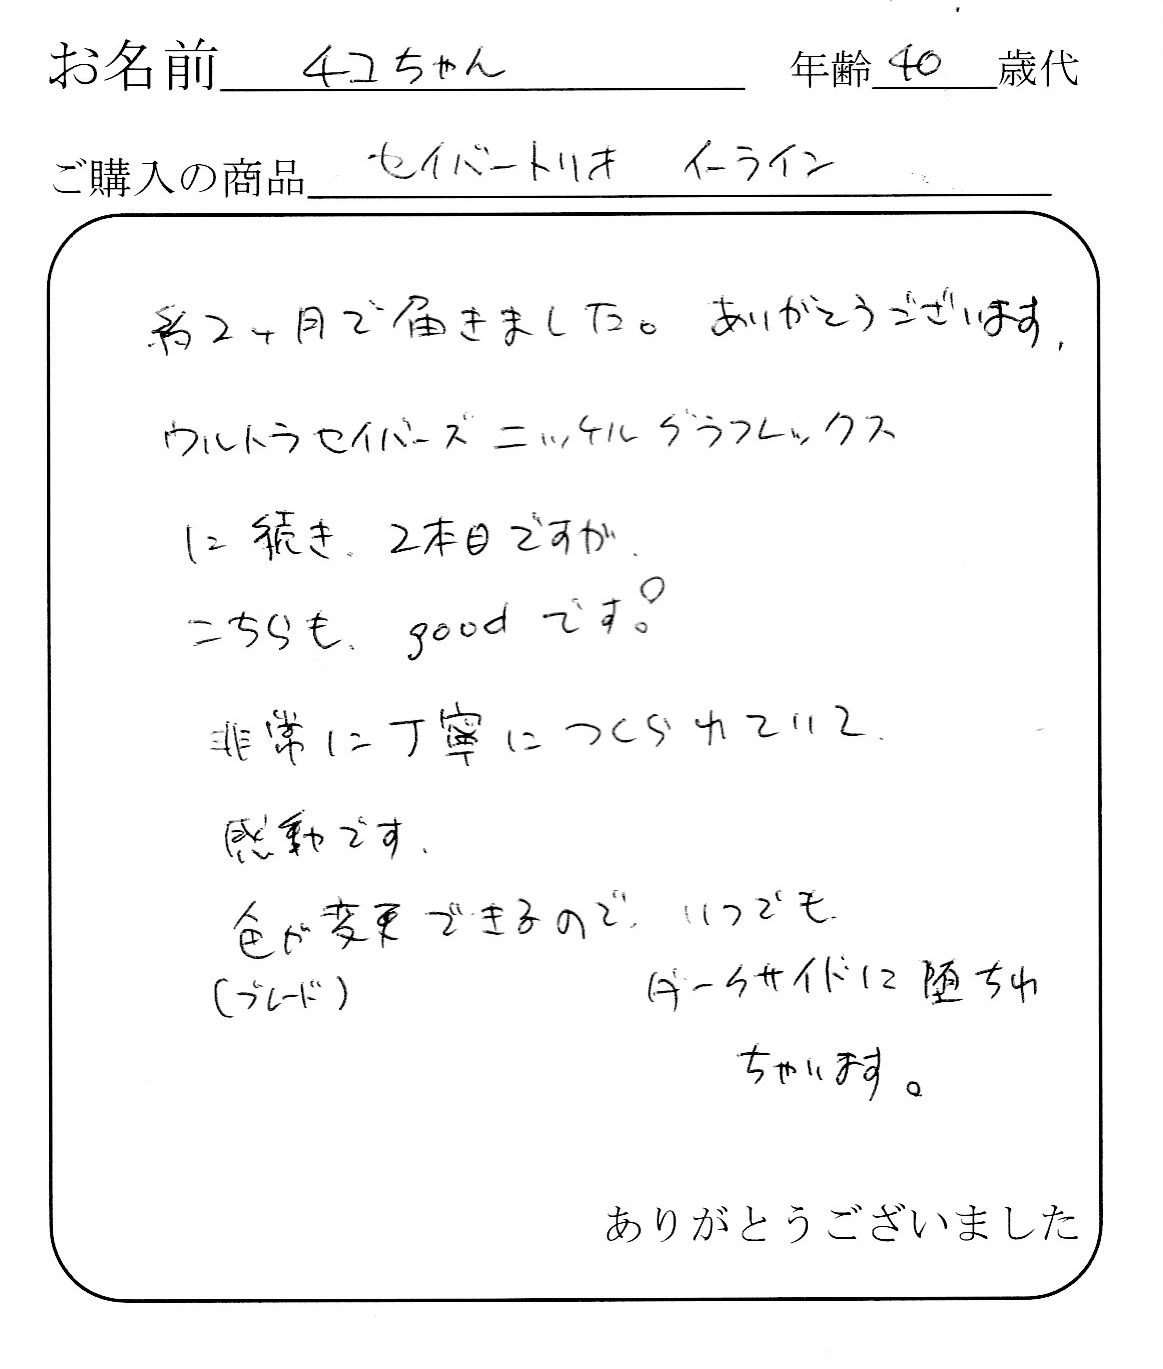 お名前 チコちゃん 年齢 40 歳代
ご購入の商品 セイバートリオ イーライン
約2ヶ月で届きました。ありがとうございます、
ウルトラセイバーズ ニッケルグラフレックス
に続き、2本目ですが、
こちらも、goodです!
非常に丁寧につくられていて、
感動です、
色が変更できるので、いつでも、
(ブレード) ダークサイドに堕ちれ
ちゃいます。
ありがとうございました